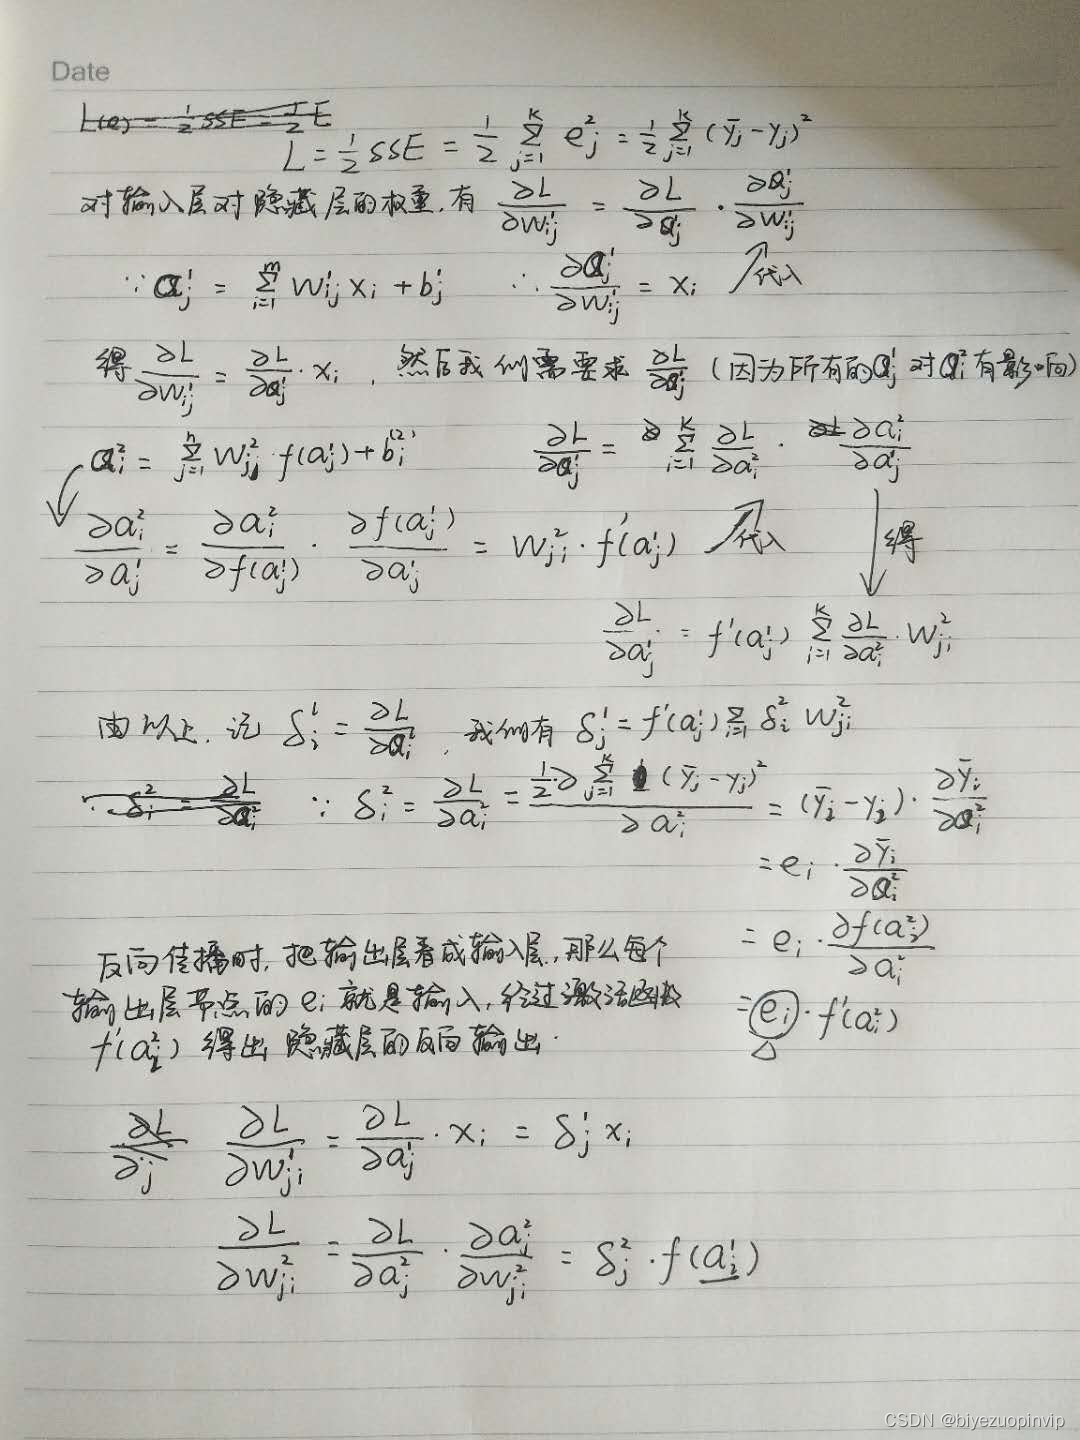 Date
L(e) = ½ SSE = ½ E
L = ½ SSE = ½ ∑_{j=1}^{K} e_j² = ½ ∑_{j=1}^{K} (ȳ_j - y_j)²
对输入层对隐藏层的权重,有 ∂L/∂w_{ij}^1 = ∂L/∂a_j^1 · ∂a_j^1/∂w_{ij}^1
∵ a_j^1 = ∑_{i=1}^{m} w_{ij}^1 x_i + b_j^1 ∴ ∂a_j^1/∂w_{ij}^1 = x_i 代入
得 ∂L/∂w_{ij}^1 = ∂L/∂a_j^1 · x_i , 然后我们需要求 ∂L/∂a_j^1 (因为所有的a_j^1 对a_i^2 有影响)
a_i^2 = ∑_{j=1}^{n} w_{ji}^2 · f(a_j^1) + b_i^{(2)} ∂L/∂a_j^1 = ∑_{i=1}^{K} ∂L/∂a_i^2 · ∂a_i^2/∂a_j^1
∂a_i^2/∂a_j^1 = ∂a_i^2/∂f(a_j^1) · ∂f(a_j^1)/∂a_j^1 = w_{ji}^2 · f'(a_j^1) 代入 得
∂L/∂a_j^1 = f'(a_j^1) ∑_{i=1}^{K} ∂L/∂a_i^2 · w_{ji}^2
由以上,记 δ_i^1 = ∂L/∂a_i^2 , 我们有 δ_j^1 = f'(a_j^1) ∑_{i=1} δ_i^2 w_{ji}^2
∵ δ_i^2 = ∂L/∂a_i^2 ∵ δ_i^2 = ∂L/∂a_i^2 = ½ · ∂ ∑_{j=1}^{K} (ȳ_j - y_j)² / ∂a_i^2 = (ȳ_i - y_i) · ∂ȳ_i/∂a_i^2
= e_i · ∂ȳ_i/∂a_i^2
= e_i · ∂f(a_i^2)/∂a_i^2
= e_i · f'(a_i^2)
反向传播时,把输出层看成输入层,那么每个
输出层节点的 e_i 就是输入,经过激活函数
f'(a_i^2) 得出 隐藏层的反向输出.
∂L/∂j ∂L/∂w_{ji}^1 = ∂L/∂a_j^1 · x_i = δ_j^1 x_i
∂L/∂w_{ji}^2 = ∂L/∂a_j^2 · ∂a_j^2/∂w_{ji}^2 = δ_j^2 · f(a_i^1)
CSDN @biyezuopinvip